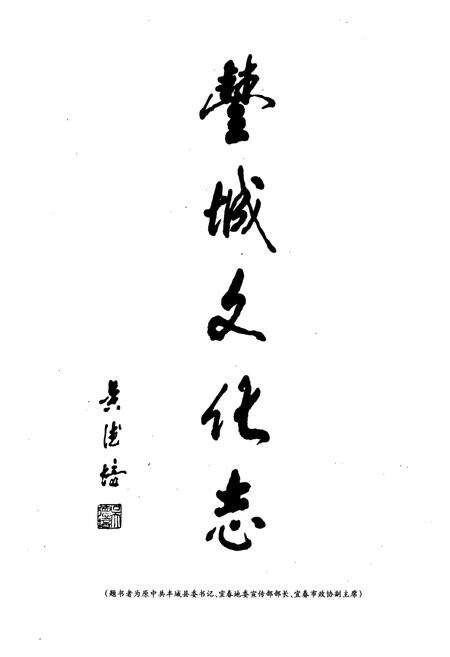 豐城文化志
(题书者为原中共丰城县委书记、宜春地委宣传部部长、宜春市政协副主席)